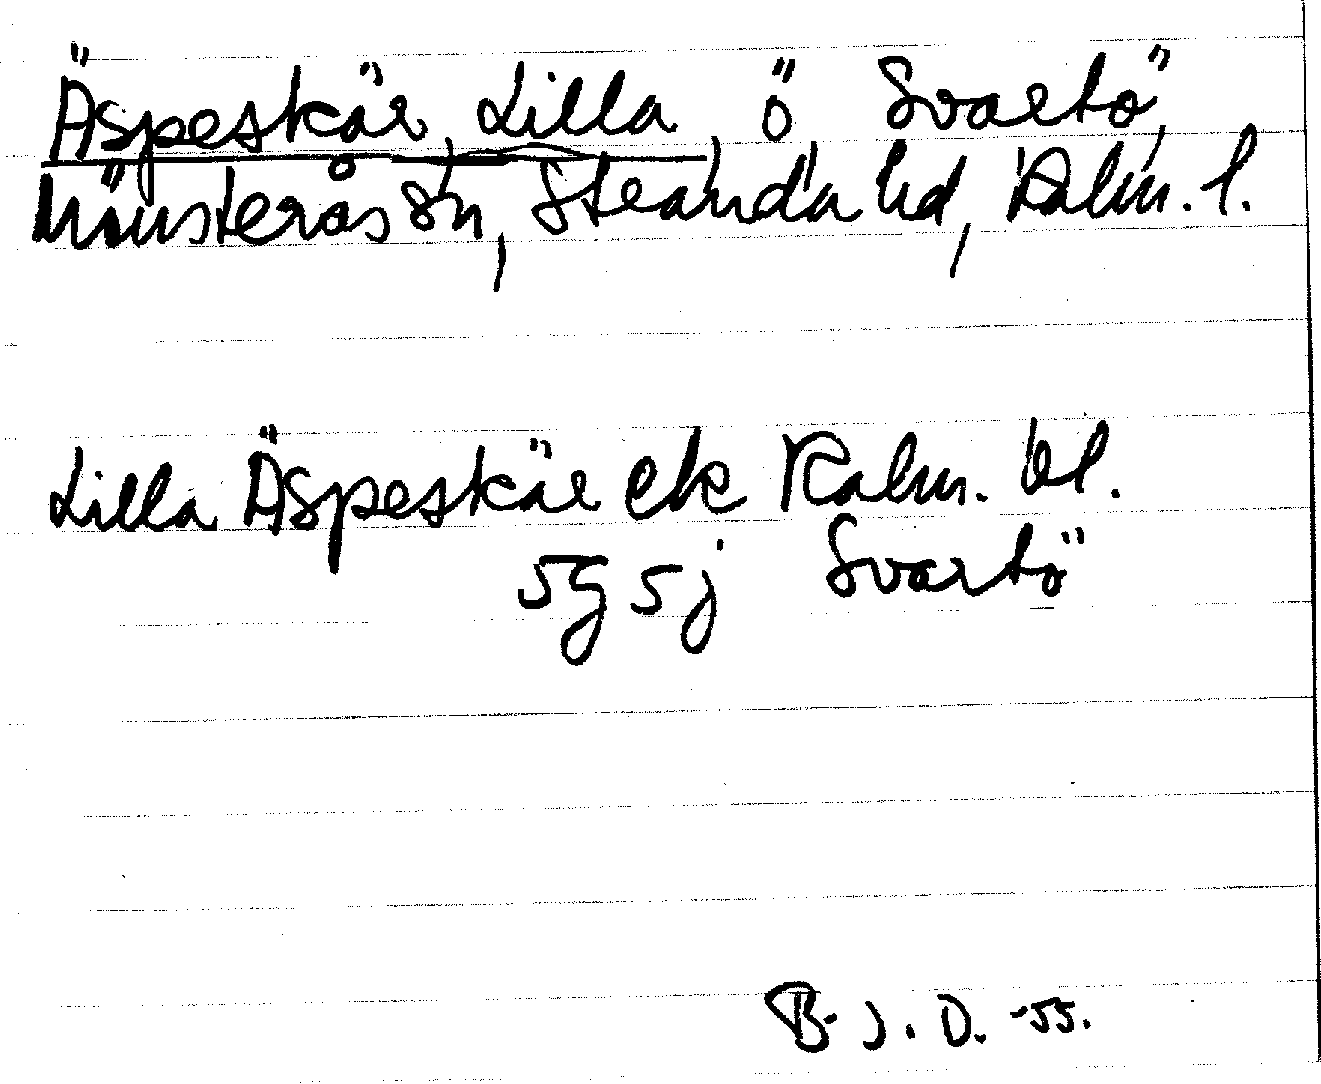 Äspeskär, Lilla, ö Svartö,
Mönsterås sn, Stranda hd, Kalm. l.
Lilla Äspeskär ek Kalm. bl.
5g5j Svartö
B. J. D. -55.